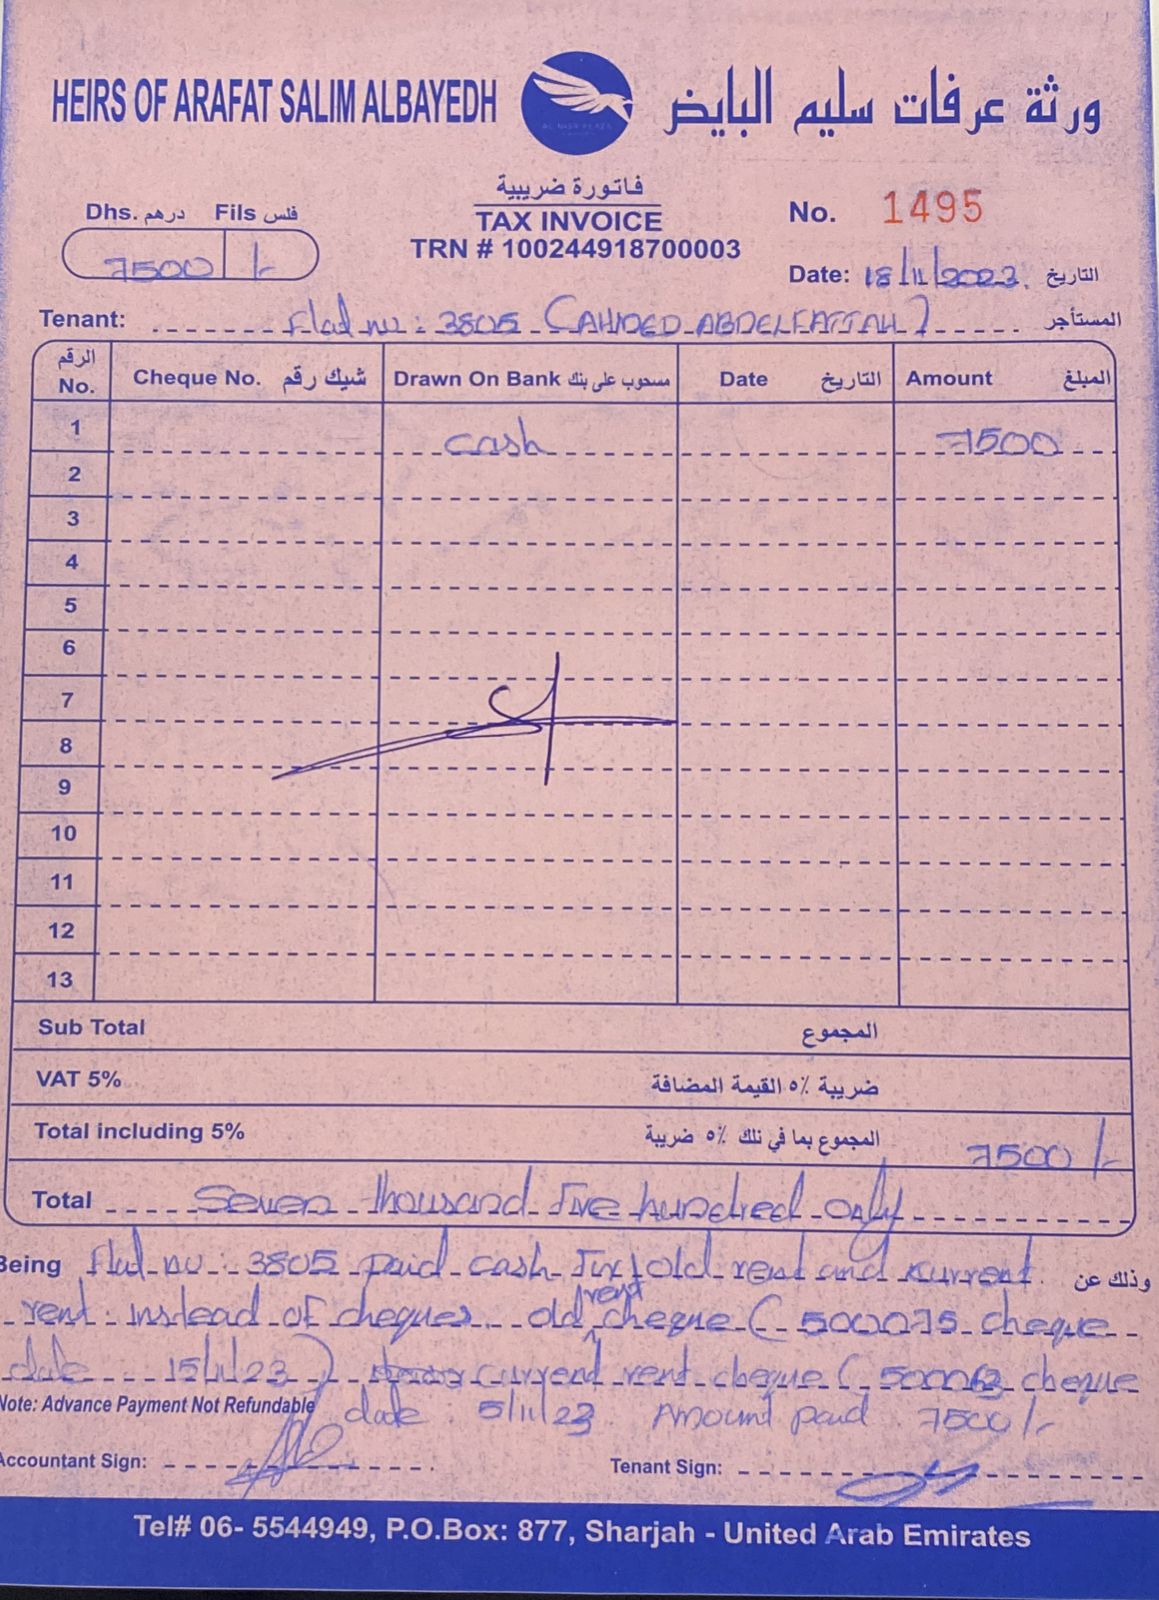 HEIRS OF ARAFAT SALIM ALBAYEDH
ورثة عرفات سليم البايض
فاتورة ضريبية
TAX INVOICE
TRN # 100244918700003
Dhs. درهم Fils فلس
7500 /-
No. 1495
Date: 18/11/2023. التاريخ
Tenant: Flad nu: 3805 (AHMED ABDELFATTAH) المستأجر
الرقم No. Cheque No. شيك رقم Drawn On Bank مسحوب على بنك Date التاريخ Amount المبلغ
1 cash 7500
2
3
4
5
6
7
8
9
10
11
12
13
Sub Total المجموع
VAT 5% ضريبة ٥٪ القيمة المضافة
Total including 5% المجموع بما في تلك ٥٪ ضريبة 7500 /-
Total Seven thousand five hundred only
Being Flad nu: 3805 paid cash old rent and kurrent وذلك عن
rent instead of cheques. old rent cheque (500075 cheque
date 15/1/23) current rent cheque ( cheque
Note: Advance Payment Not Refundable date 5/11/23 Amount paid 7500/-
Accountant Sign:
Tenant Sign:
Tel# 06- 5544949, P.O.Box: 877, Sharjah - United Arab Emirates